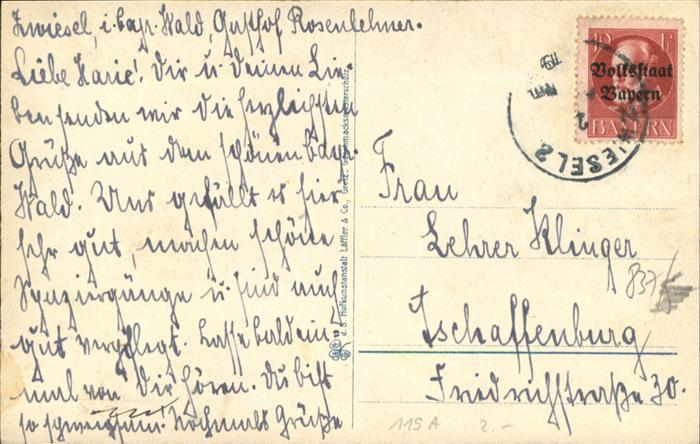 Zwiesel, i. bayr. Wald. Gasthof Rosenlehner.
Liebe Marie! Dir u. Deinen Lie-
ben senden wir die herzlichsten
Grüße aus dem schönen bayr.
Wald. Uns gefällt es hier
sehr gut, machen schöne
Spaziergänge u. sind auch
gut verpflegt. Lasse bald ein-
mal von Dir hören. Du bist
so schweigsam. Nochmals Grüße
Hofkunstanstalt Löffler & Co., Greiz.
10 Pf
Volksstaat
Bayern
BAYERN
ZWIESEL 2
Frau
Lehrer Klinger
Aschaffenburg
Friedrichstraße 30.
837
115 A
2.-